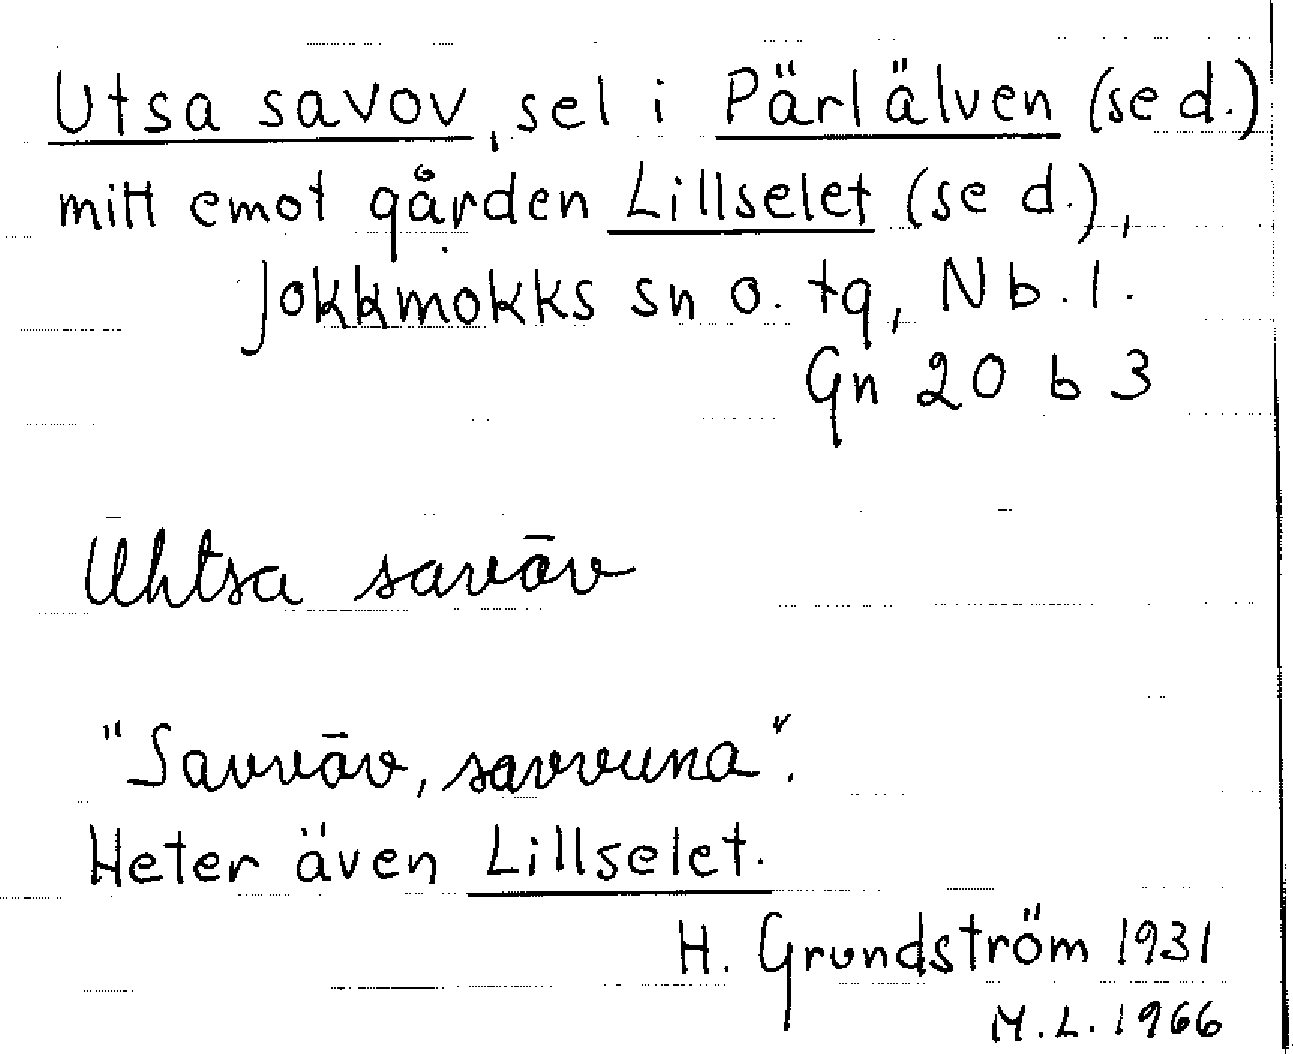 Utsa savov, sel i Pärlälven (se d.)
mitt emot gården Lillselet (se d.),
Jokkmokks sn o. tg, Nb. l.
Gn 20 b 3
Uhtsa savōv
"Savvōv, savvuna".
Heter även Lillselet.
H. Grundström 1931
M.L. 1966